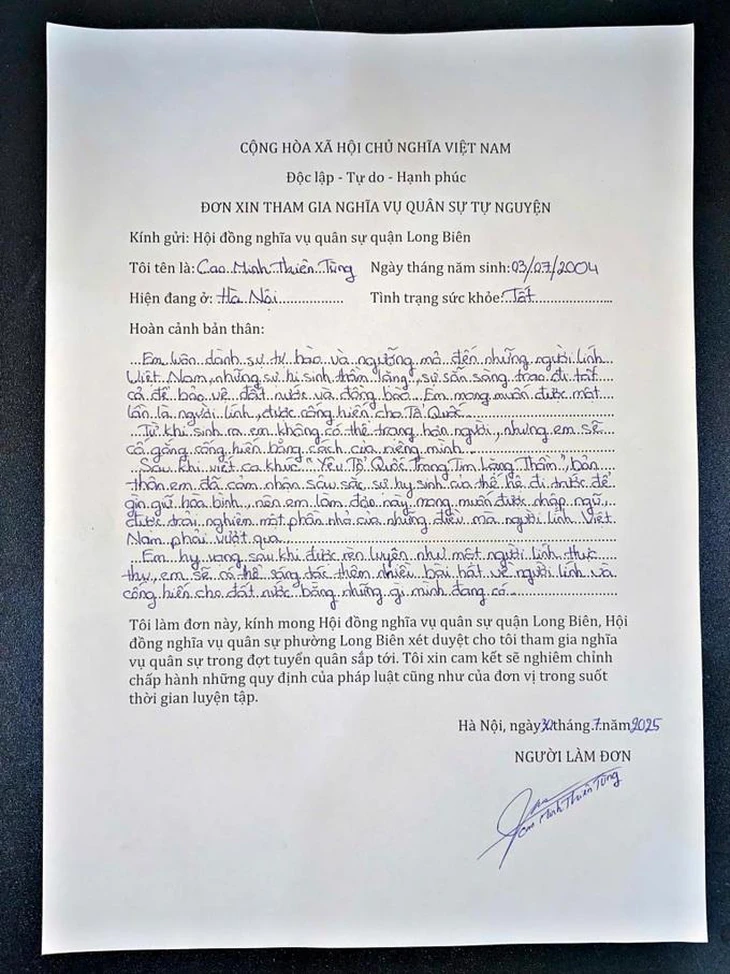 CỘNG HÒA XÃ HỘI CHỦ NGHĨA VIỆT NAM
Độc lập - Tự do - Hạnh phúc
ĐƠN XIN THAM GIA NGHĨA VỤ QUÂN SỰ TỰ NGUYỆN
Kính gửi: Hội đồng nghĩa vụ quân sự quận Long Biên
Tôi tên là: Cao Minh Thiên Tùng Ngày tháng năm sinh: 03/07/2004
Hiện đang ở: Hà Nội Tình trạng sức khỏe: Tốt
Hoàn cảnh bản thân:
Em luôn dành sự tự hào và ngưỡng mộ đến những người lính
Việt Nam, những sự hi sinh thầm lặng, sự sẵn sàng trao đi tất
cả để bảo vệ đất nước và đồng bào. Em mong muốn được một
lần là người lính, được cống hiến cho Tổ Quốc
Từ khi sinh ra em không có thể trạng hơn người, nhưng em sẽ
cố gắng cống hiến bằng cách của riêng mình
Sau khi viết ca khúc "Yêu Tổ Quốc Trong Tim Lặng Thầm", bản
thân em đã cảm nhận sâu sắc sự hy sinh của thế hệ đi trước để
gìn giữ hòa bình, nên em làm đơn này mong muốn được nhập ngũ,
được trải nghiệm một phần nhỏ của những điều mà người lính Việt
Nam phải vượt qua
Em hy vọng sau khi được rèn luyện như một người lính thực
thụ, em sẽ có thể sáng tác thêm nhiều bài hát về người lính và
cống hiến cho đất nước bằng những gì mình đang có
Tôi làm đơn này, kính mong Hội đồng nghĩa vụ quân sự quận Long Biên, Hội
đồng nghĩa vụ quân sự phường Long Biên xét duyệt cho tôi tham gia nghĩa
vụ quân sự trong đợt tuyển quân sắp tới. Tôi xin cam kết sẽ nghiêm chỉnh
chấp hành những quy định của pháp luật cũng như của đơn vị trong suốt
thời gian luyện tập.
Hà Nội, ngày 30 tháng 7 năm 2025
NGƯỜI LÀM ĐƠN
Cao Minh Thiên Tùng